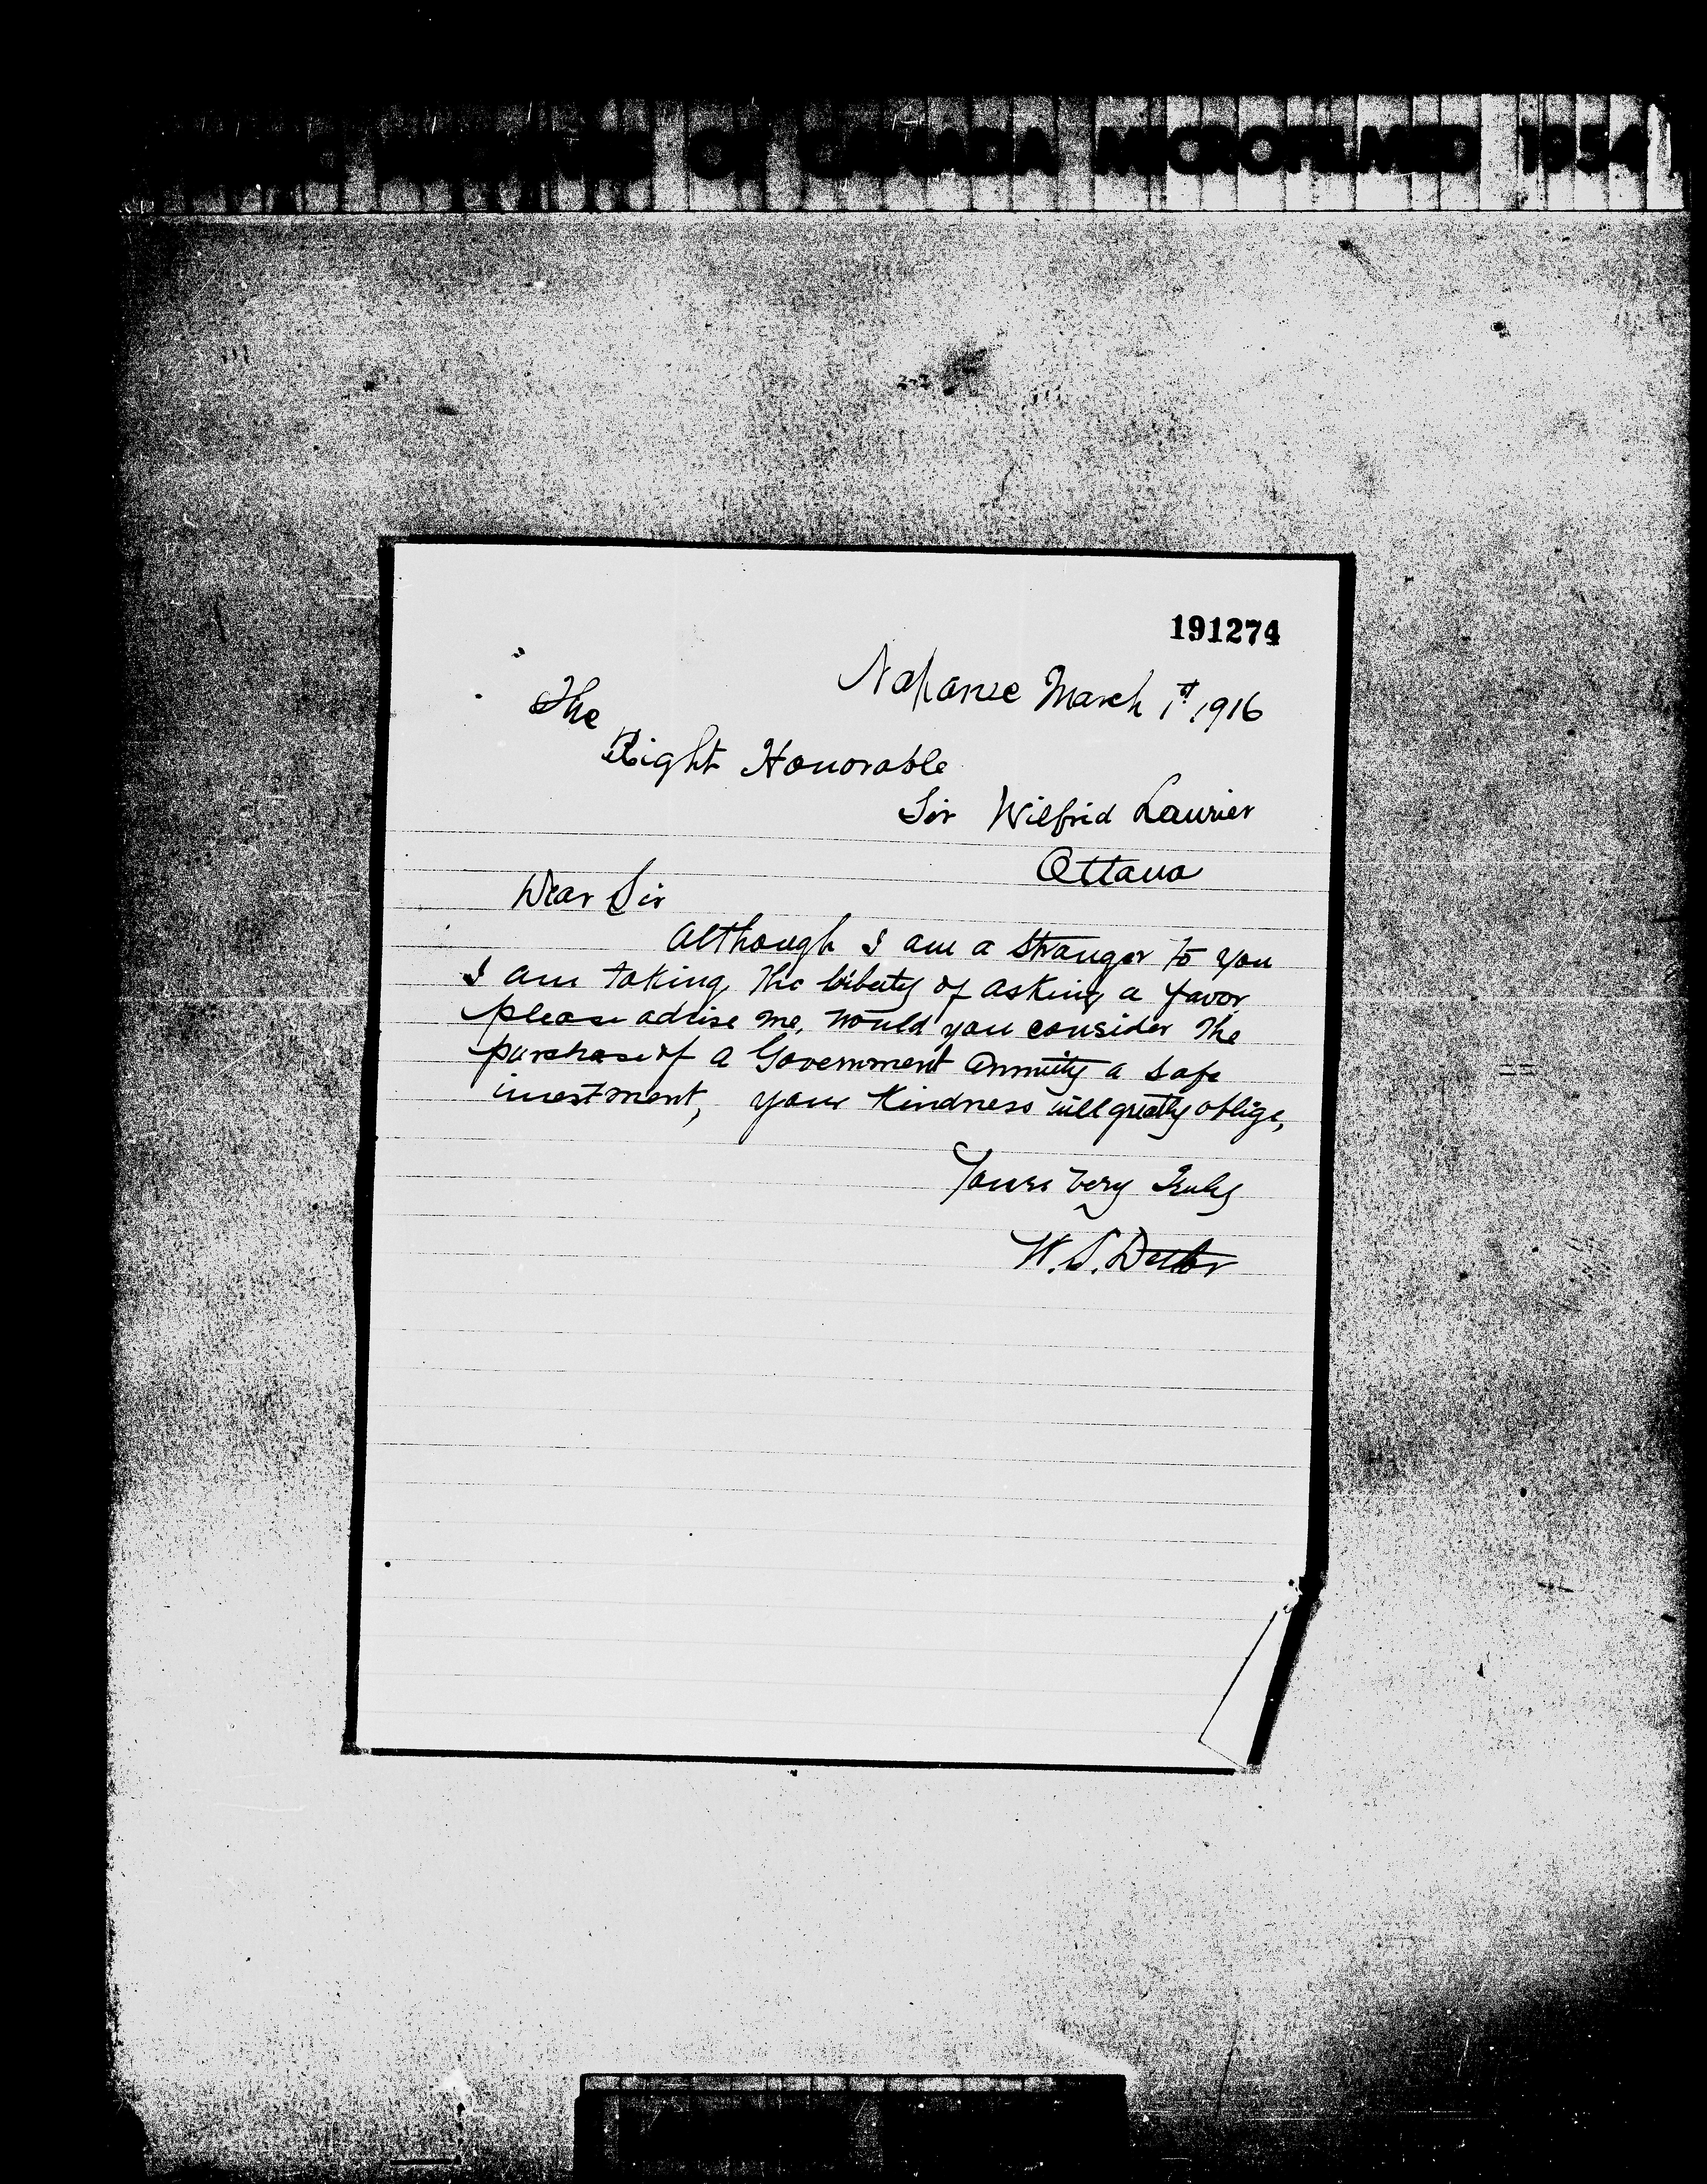 PUBLIC ARCHIVES OF CANADA MICROFILMED 1954
191274
Napanee March 1st 1916
The
Right Honorable
Sir Wilfrid Laurier
Ottawa
Dear Sir
Although I am a Stranger to you
I am taking the liberty of asking a favor
please advise me, would you consider the
purchase of a Government Annuity a safe
investment, your Kindness will greatly oblige,
Yours very Truly
W. S.